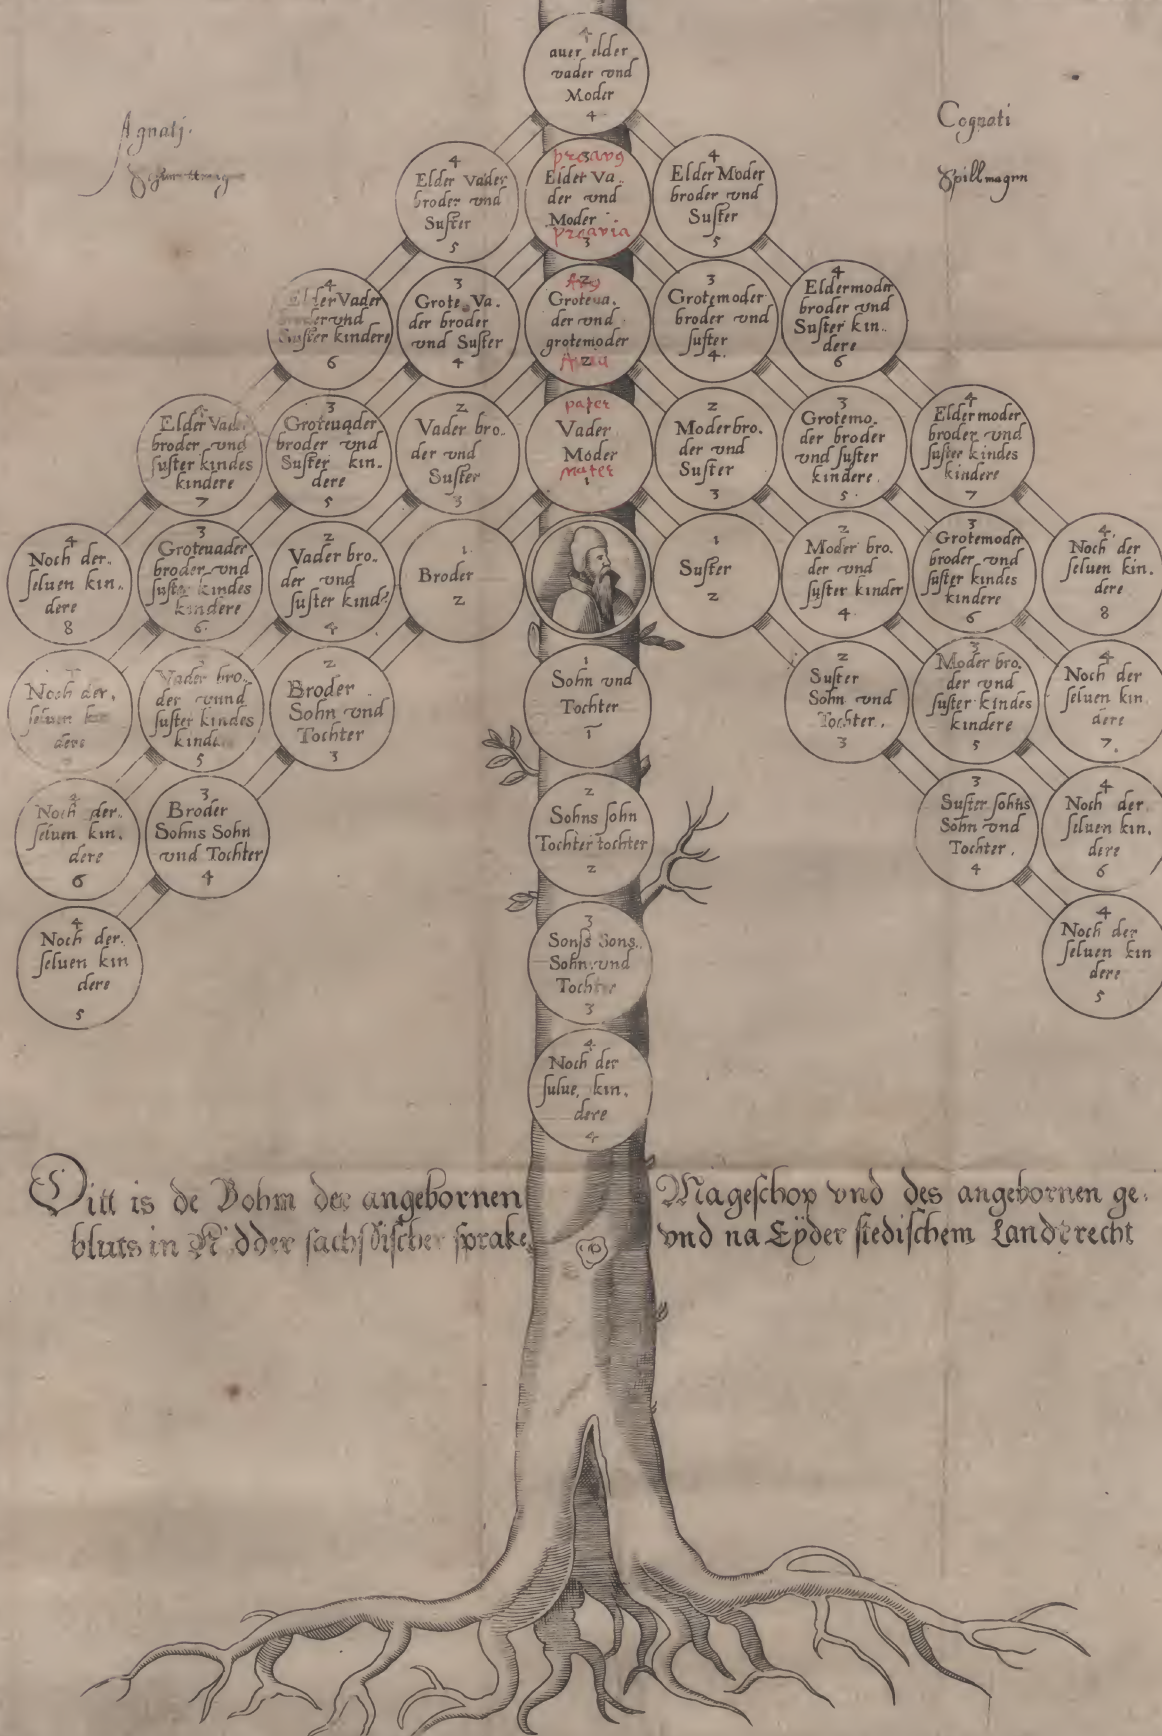 4
auer elder
vader vnd
Moder
4
Agnatj.
Cogenati
Spillmagen
4
Elder Vader
broder vnd
Suſter
5
proavg
3
Elder Va..
der vnd
Moder
proavia
3
4
Elder Moder
broder vnd
Suſter
5
4
Elder Vader
broder vnd
Suſter kindere
6
3
Grote Va.
der broder
vnd Suſter
4
Avg
2
Groteua.
der vnd
grotemoder
Avia
2
3
Grotemoder
broder vnd
ſuſter
4.
4
Eldermoder
broder vnd
Suſter kin..
dere
6
4
Elder Vad
broder vnd
ſuſter kindes
kindere
7
3
Groteuader
broder vnd
Suſter kin.
dere
5
2
Vader bro..
der vnd
Suſter
3
pater
Vader
Moder
mater
1
2
Moder bro.
der vnd
Suſter
3
3
Grotemo.
der broder
vnd ſuſter
kindere.
5.
4
Elder moder
broder vnd
ſuſter kindes
kindere
7
4
Noch der..
ſeluen kin..
dere
8
3
Groteuader
broder vnd
ſuſter kindes
kindere
6.
2
Vader bro..
der vnd
ſuſter kind
4
1.
Broder
2
1
Suſter
2
2
Moder bro.
der vnd
ſuſter kinder
4
3
Grotemoder
broder vnd
ſuſter kindes
kindere
6
4.
Noch der
ſeluen kin.
dere
8
Noch der.
ſeluen
dere
Vader bro.
der vnnd
ſuſter kindes
5
2
Broder
Sohn vnd
Tochter
3
1
Sohn vnd
Tochter
1
2
Suſter
Sohn vnd
Tochter.
3
3
Moder bro.
der vnd
ſuſter kindes
kindere
5
4
Noch der
ſeluen kin
dere
7.
Noch der.
ſeluen kin.
dere
6
3
Broder
Sohns Sohn
vnd Tochter
4
2
Sohns ſohn
Tochter tochter
2
3
Suſter ſohns
Sohn vnd
Tochter.
4
4
Noch der
ſeluen kin.
dere
6
4
Noch der.
ſeluen kin
dere
5
3
Sonſs Sons..
Sohn vnd
Tochter
3
4
Noch der
ſeluen kin
dere
5
4.
Noch der
ſulue, kin.
dere
4
Ditt is de Bohm der angebornen Mageſchop vnd des angebornen ge:
bluts in dder ſachſiſcher ſprake, vnd na Eÿder ſtedíſchem Landtrecht